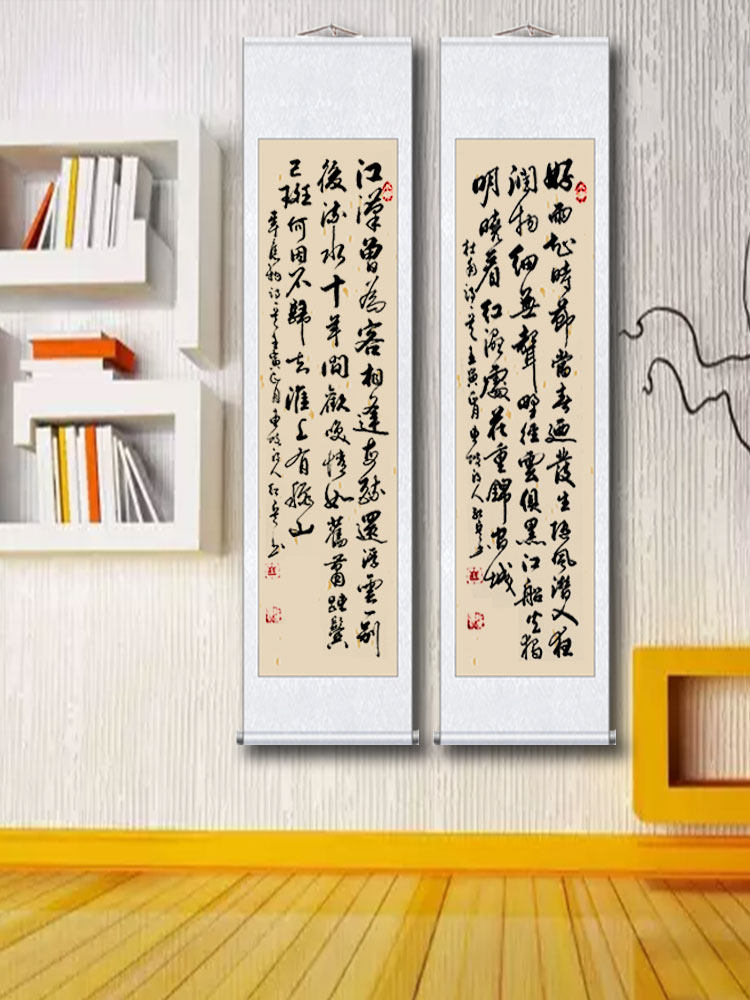 好雨知時節當春廼發生随風潛入夜
潤物細無聲野徑雲俱黑江船火獨
明曉看紅濕處花重錦官城
杜甫詩一首壬寅正月
江漢曾為客相逢每醉還浮雲一別
後流水十年間歡笑情如舊蕭疏鬢
已斑何因不歸去淮上有秋山
韋應物詩一首壬寅正月